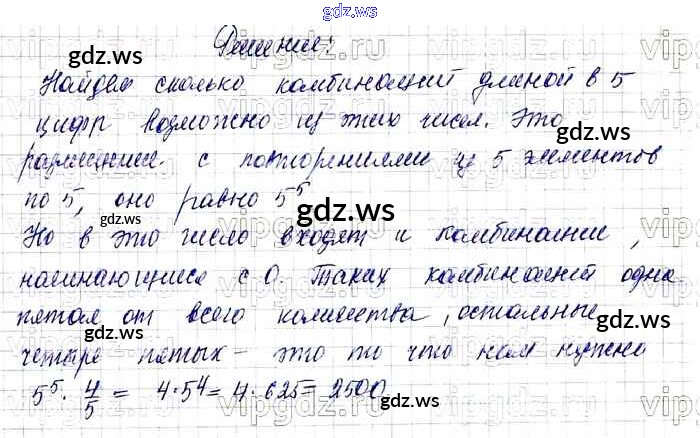 gdz.ws
Решение:
gdz.ws
Найдем сколько комбинаций длиной в 5
цифр возможно из этих чисел. Это
размещение с повторениями из 5 элементов
по 5, оно равно 5⁵
gdz.ws
Но в это число входят и комбинации,
начинающиеся с 0. Таких комбинаций одна
пятая от всего количества, остальные
gdz.ws
gdz.ws
четыре пятых - это то что нам нужно
5⁵ · 4/5 = 4·5⁴ = 4·625 = 2500
gdz.ws